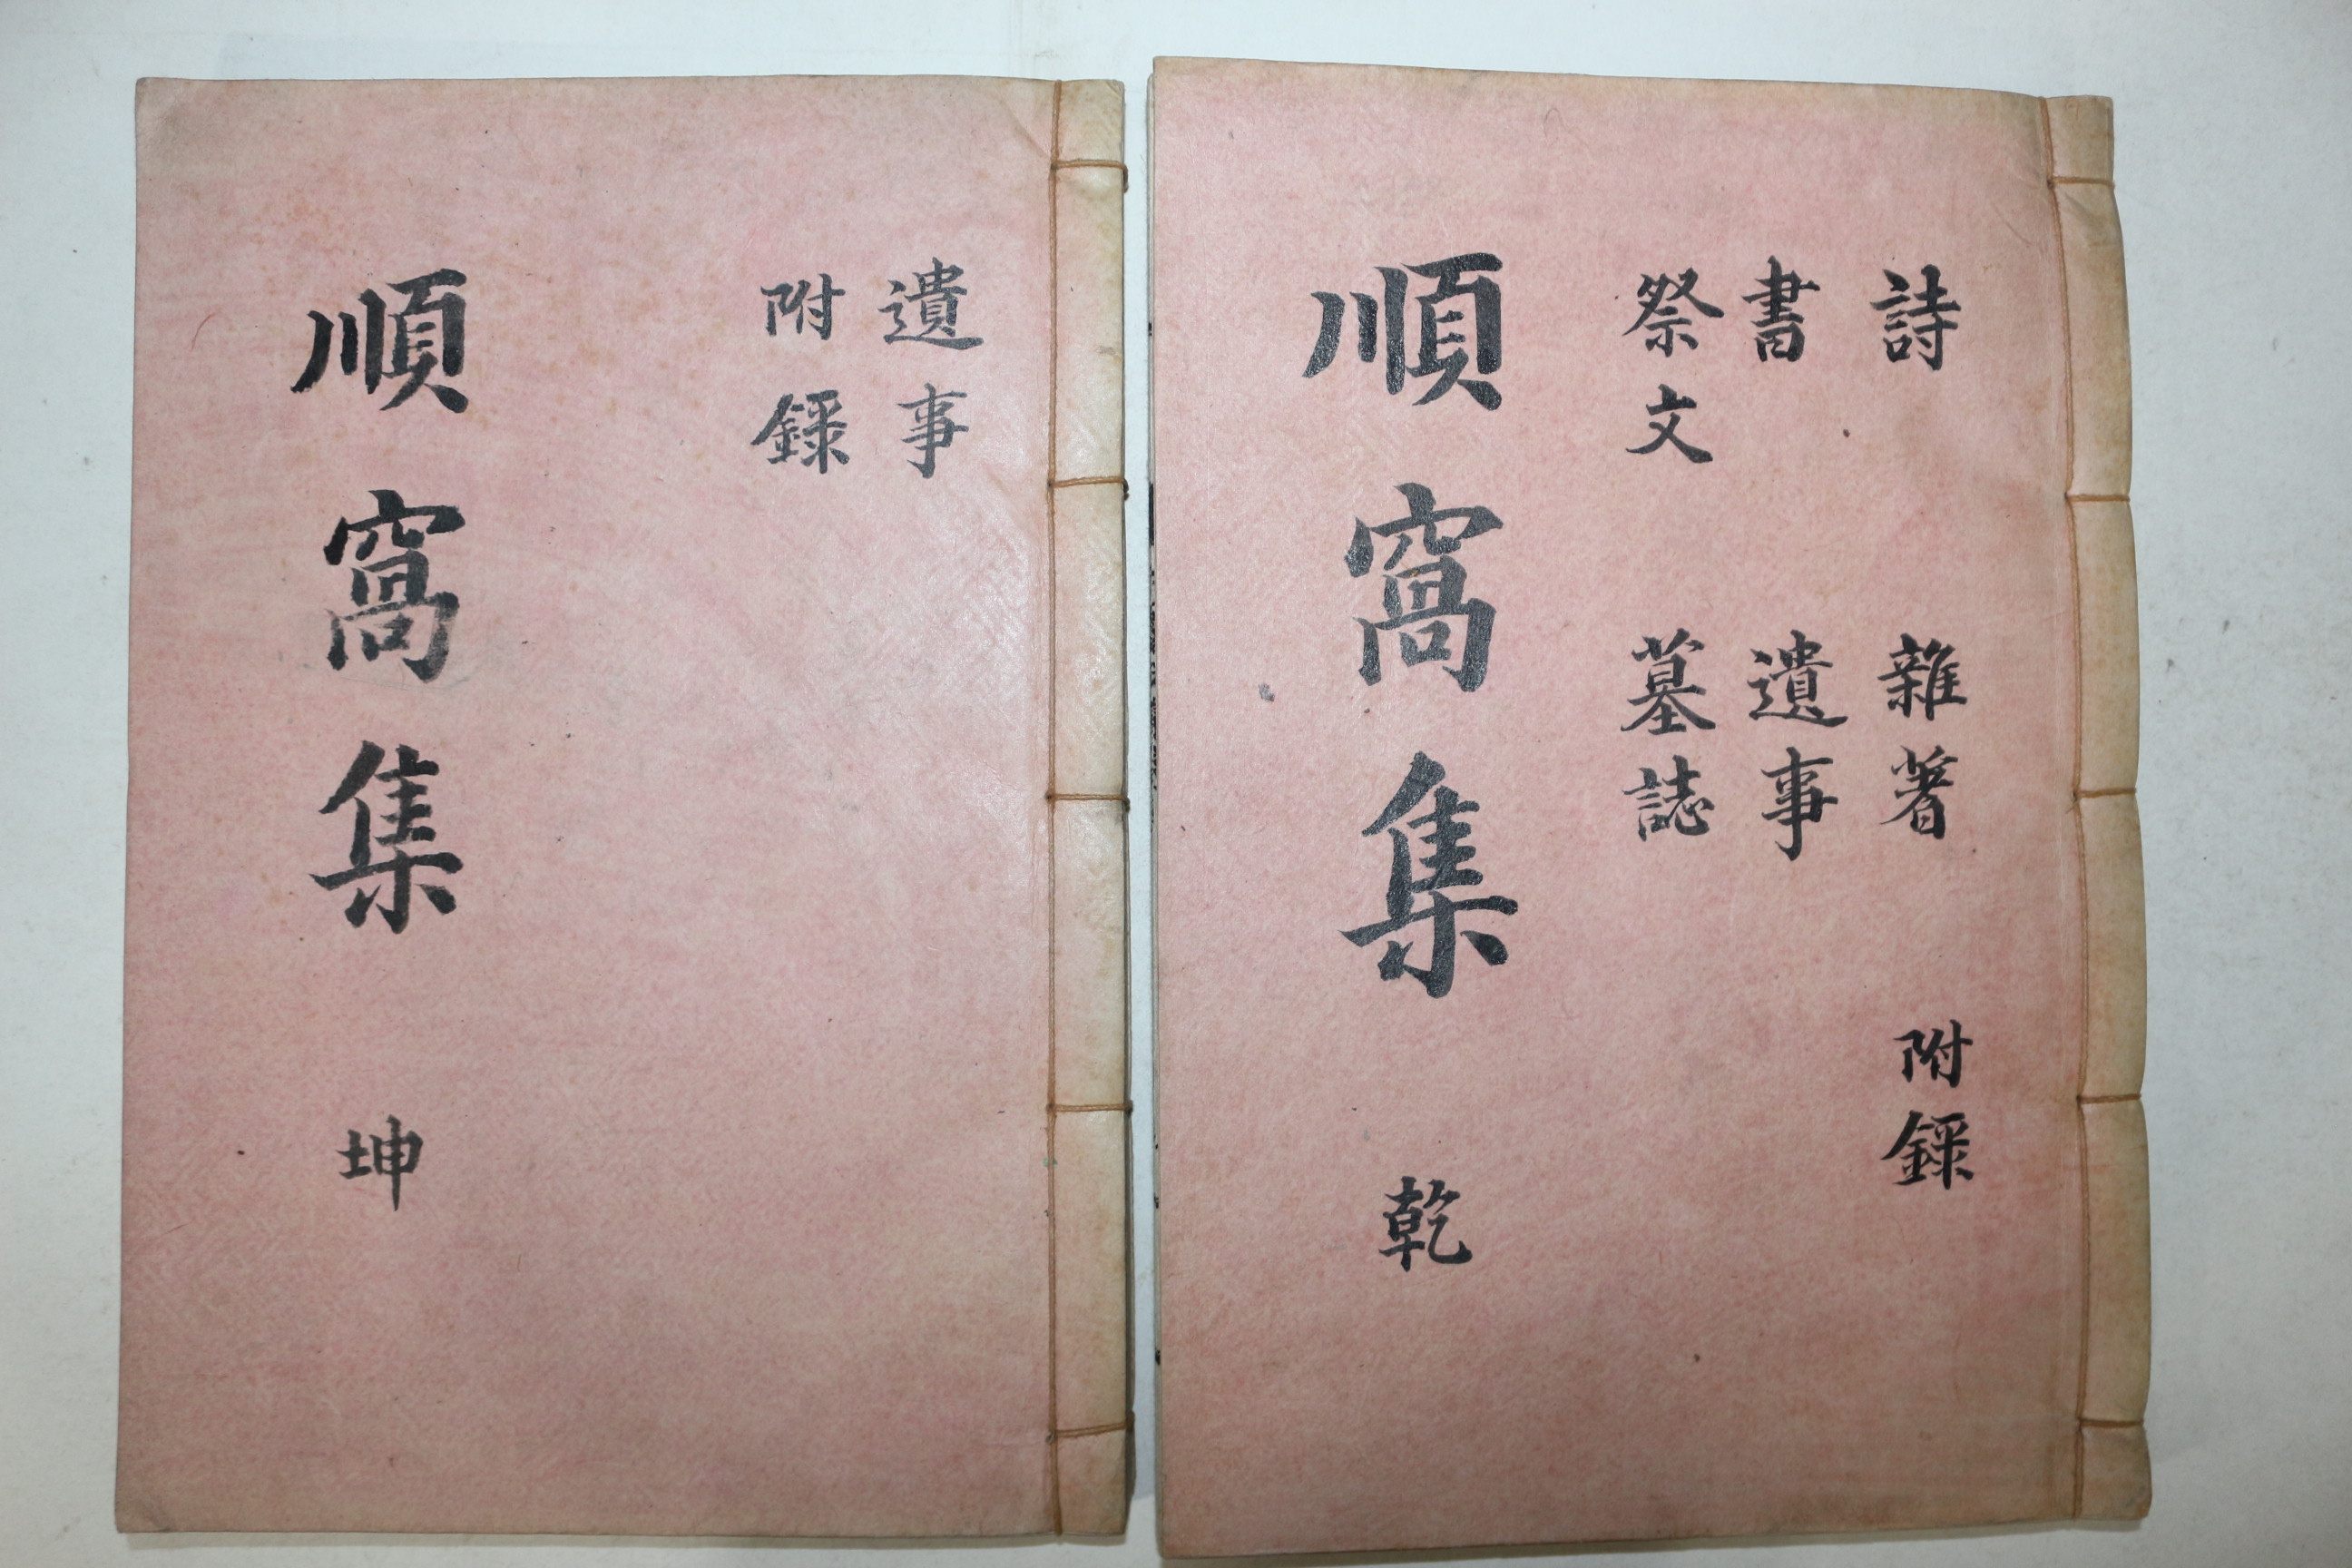 詩 雜著 附錄
書 遺事
祭文 墓誌
順窩集 乾
遺事
附錄
順窩集 坤